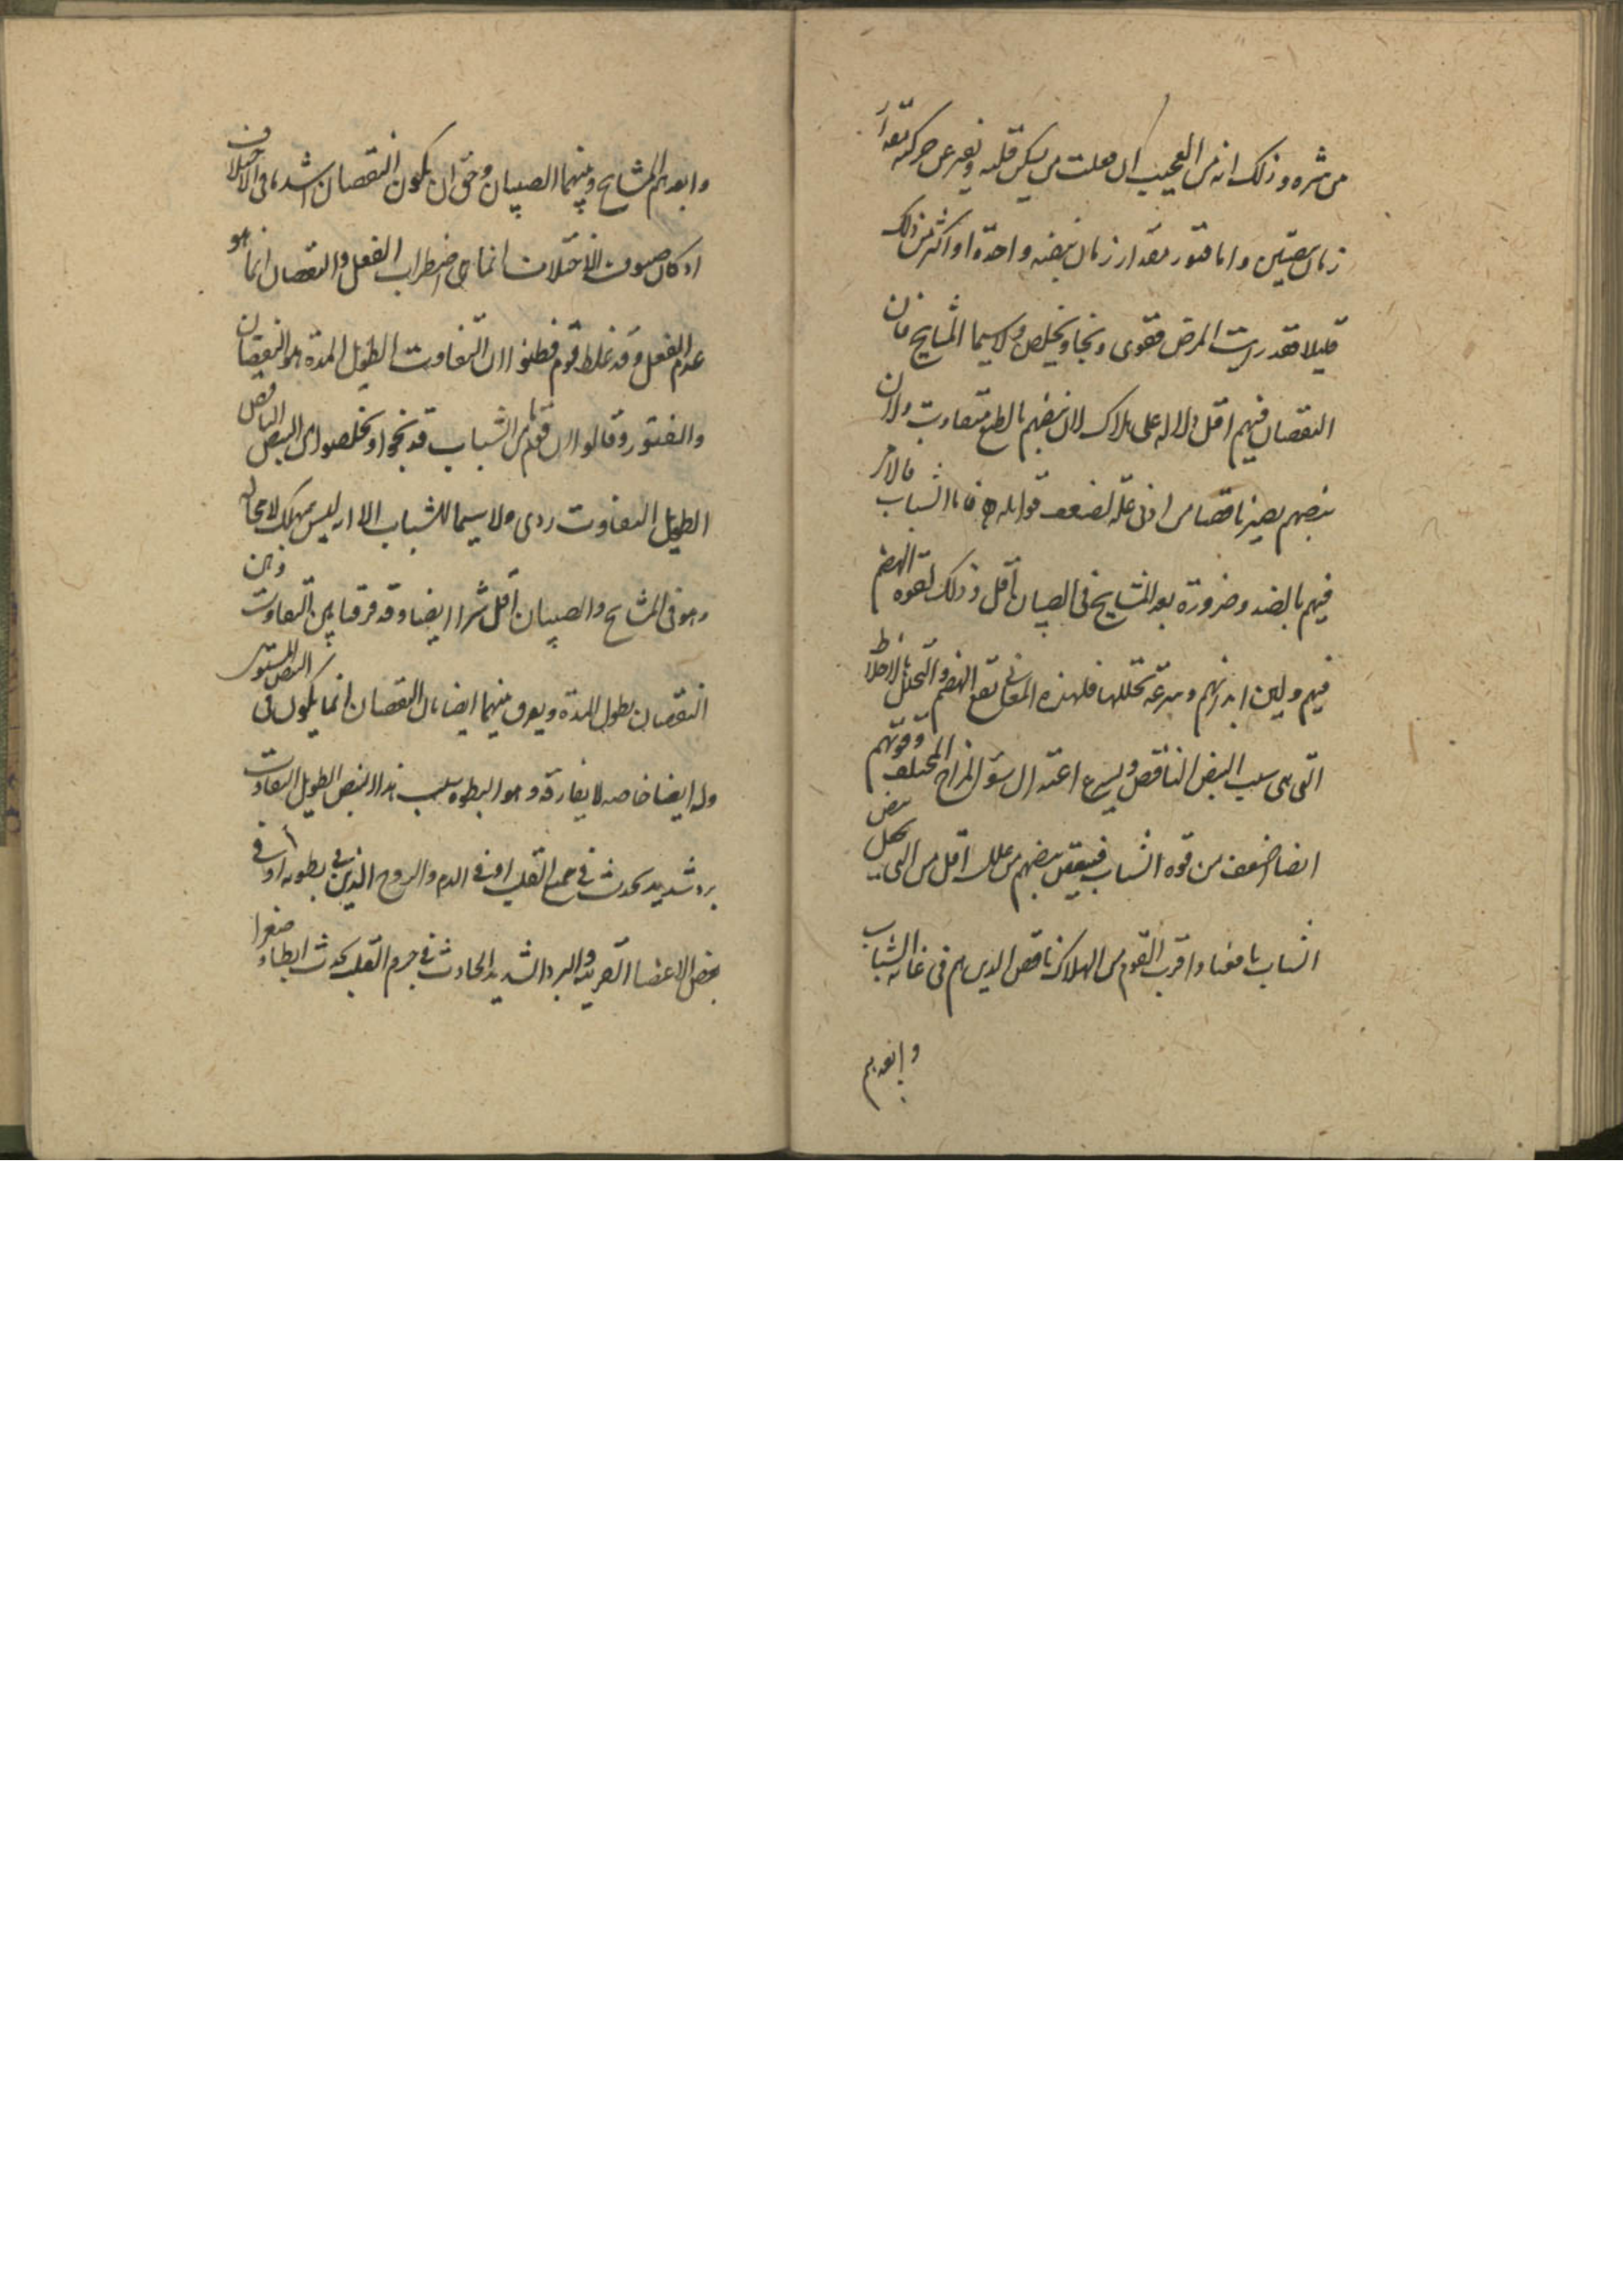 من شره وذلك انه من العجيب ان يفلت من يسكن قلبه ويفتر عن حركته مقدار
زمان نبضتين واما فتور مقدار زمان نبضه واحدة او اكثر من ذلك
قليلا فقد رايت المرض فقوى ونجا وتخلص ولا سيما المشايخ فان
النقصان فيهم اقل دلاله على هلاك لان نبضهم بالطبع متفاوت ولان
نبضهم يصير ناقصا من ادنى علة لضعف قواهم فاما الشباب فالامر
فيهم بالضد وضرورة بعد المشايخ فى الصبيان اقل وذلك لقوة الهضم
فيهم ولين ابدانهم وسرعة تحللها فلهذه المعانى يقع الهضم والتحلل بالاخلاط
التى هى سبب النبض الناقص ويسرع اعتدال سوء المزاج المختلف وقوتهم
ايضا اضعف من قوة الشباب فينقص نبضهم من علل اقل من التى نبض
الشباب ناقصا واقرب القوم من الهلاك ناقص الذين هم فى غاية الشباب
وابعدهم
وابعدهم المشايخ وبينهما الصبيان وحق ان يكون النقصان اشدها فى الاختلاف
اذ كان صنوف الاختلاف انما هى اضطراب الفعل والنقصان انما هو
عدم الفعل وقد غلط قوم فظنوا ان التفاوت الطويل المدة هو النقصان
والفتور وقالوا ان قوما من الشباب قد نجوا وتخلصوا من النبض الناقص
الطويل التفاوت ردى ولا سيما للشباب الا انه ليس بمهلك لا محالة
وهو فى المشايخ والصبيان اقل شرا ايضا وقد فرقنا بين التفاوت وبين
النقصان بطول المدة ويعرف بينهما ايضا بان النقصان انما يكون فى النبض المستوى
وله ايضا خاصه لا يفارقه وهو البطوء سبب هذا النبض الطويل التفاوت
برد شديد يحدث فى جسم القلب او فى الدم والروح الذين فى بطونه او فى
بعض الاعضا القريبة والبرد الشديد الحادث فى جرم القلب يحدث ابطاء وصغرا